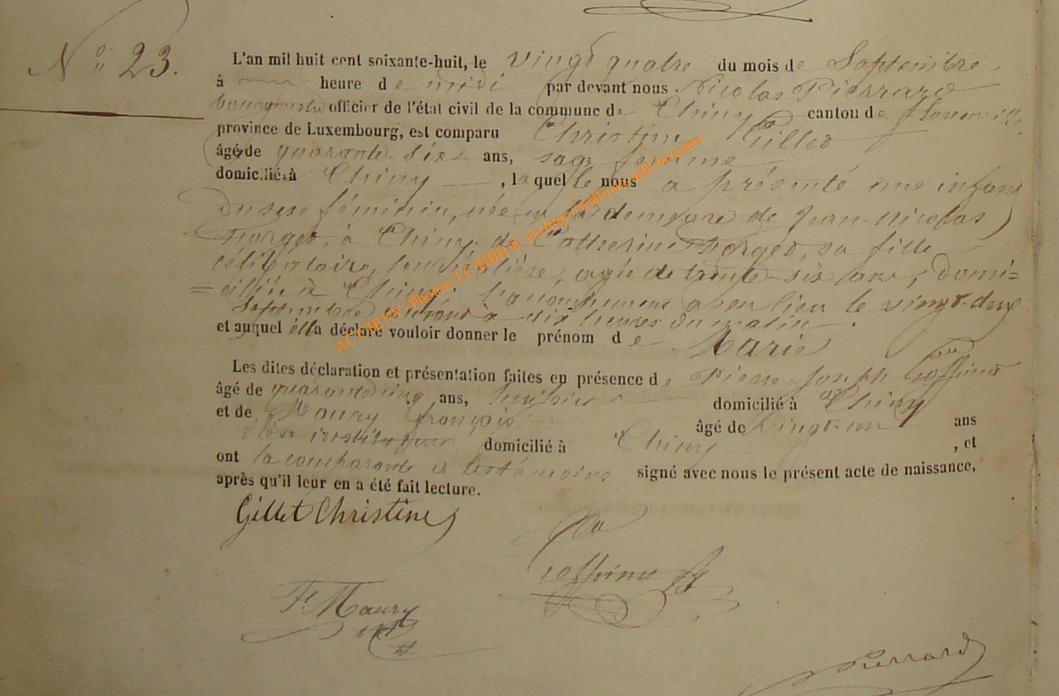 N° 23.
L'an mil huit cent soixante-huit, le vingt quatre du mois de Septembre
à heure de midi par devant nous Nicolas Pierrard
bourgmestre officier de l'état civil de la commune de Chiny canton de Florenville
province de Luxembourg, est comparu Christine Gillet
âgée de quarante six ans, sage femme
domicilié à Chiny, laquelle nous a présenté une enfant
du sexe féminin, née en la demeure de Jean-Nicolas
à Chiny, de Catherine sa fille
célibataire, agée de trente-six ans, domi=
=ciliée à Chiny. L'accouchement a eu lieu le vingt-deux
Septembre courant à dix heures du matin.
et auquel elle a déclaré vouloir donner le prénom de Marie
Les dites déclaration et présentation faites en présence de Pierre-Joseph Goffinet
âgé de quarante cinq ans, huissier domicilié à Chiny
et de Maury françois âgé de vingt un ans
instituteur domicilié à Chiny, et
ont la comparante et les témoins signé avec nous le présent acte de naissance,
après qu'il leur en a été fait lecture.
Gillet Christine
Goffinet
F. Maury
Pierrard